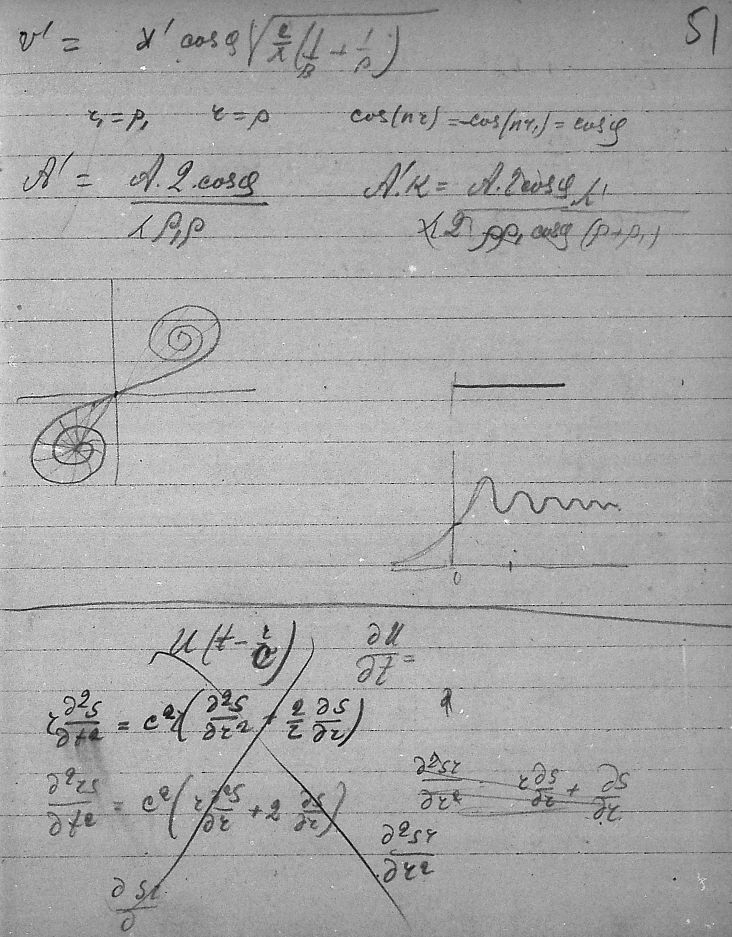 51
v' = x' cosφ √(2/λ (1/ρ + 1/ρ₁))
r₁=ρ₁ r=ρ cos(nr) = -cos(nr₁) = cosφ
A' = A.2.cosφ / λρ₁ρ
A'.K = A.2cosφ λ' / λ2 ρρ₁ cosφ (ρ+ρ₁)
0
u(t - r/c) ∂u/∂t =
r ∂²s/∂t² = c²(∂²s/∂r² + 2/r ∂s/∂r)
∂²rs/∂t² = c²(r ∂²s/∂r + 2 ∂s/∂r) ∂²sr/∂r² r ∂s/∂r + ∂s/∂r
∂²sr/∂r²
∂ sr/∂